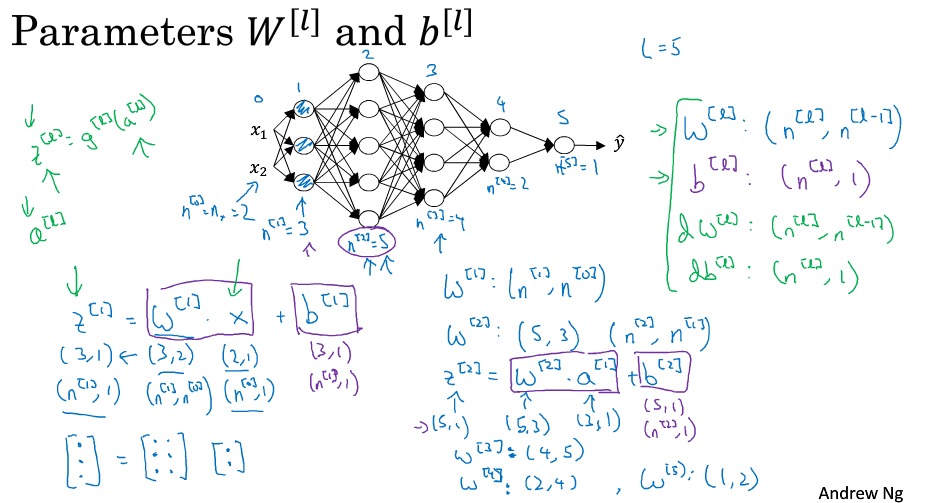 Parameters W^[l] and b^[l]
L=5
0 1 2 3 4 5
x₁
x₂
ŷ
z^[l] = g^[l](a^[l])
a^[l]
n^[0]=nₓ=2
n^[1]=3
n^[2]=5
n^[3]=4
n^[4]=2
n^[5]=1
→ W^[l]: (n^[l], n^[l-1])
→ b^[l]: (n^[l], 1)
dW^[l]: (n^[l], n^[l-1])
db^[l]: (n^[l], 1)
z^[1] = W^[1] · x + b^[1]
(3,1) ← (3,2) (2,1) (3,1)
(n^[1],1) (n^[1],n^[0]) (n^[0],1) (n^[1],1)
[⋮] = [⋮ ⋮] [:]
W^[1]: (n^[1], n^[0])
W^[2]: (5,3) (n^[2], n^[1])
z^[2] = W^[2] · a^[1] + b^[2]
→(5,1) (5,3) (3,1) (5,1)
(n^[2],1)
W^[3]: (4,5)
W^[4]: (2,4) , W^[5]: (1,2)
Andrew Ng